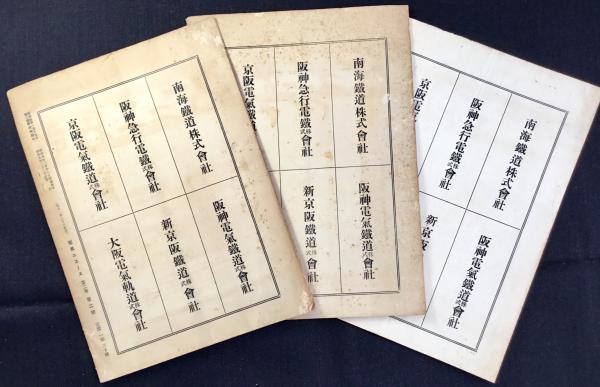 南海鐵道株式會社
阪神急行電鐵株式會社
京阪電氣鐵道株式會社
阪神電氣鐵道株式會社
新京阪鐵道株式會社
大阪電氣軌道株式會社
南海鐵道株式會社
阪神急行電鐵株式會社
京阪電氣鐵道
阪神電氣鐵道株式會社
新京阪鐵道株式會社
南海鐵道株式會社
阪神急行電鐵株式會社
京阪電
阪神電氣鐵道株式會社
新京阪